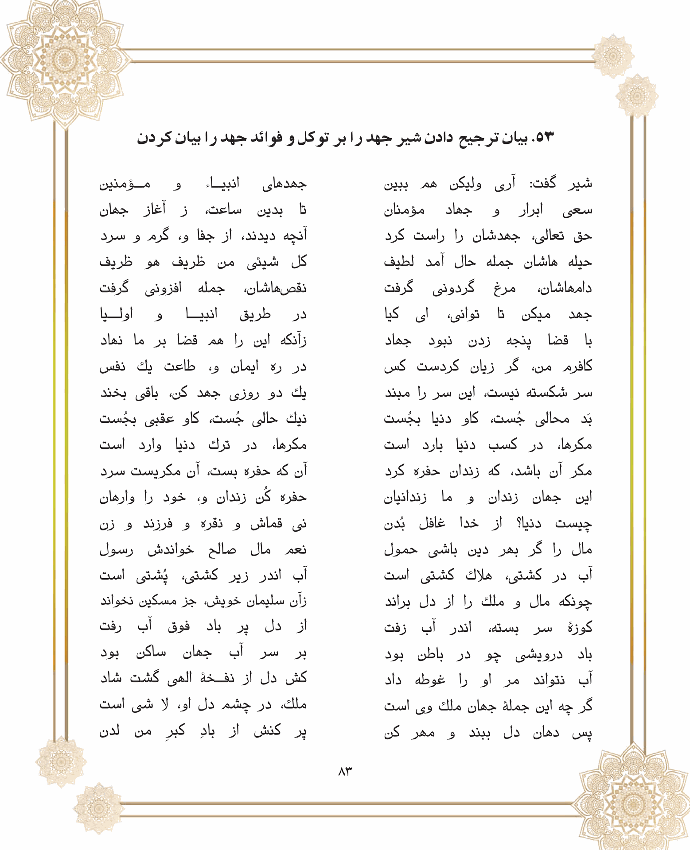 ۵۳. بیان ترجیح دادن شیر جهد را بر توکل و فوائد جهد را بیان کردن
شیر گفت: آری ولیکن هم ببین جهدهای انبیـاء و مـؤمنین
سعی ابرار و جهاد مؤمنان تا بدین ساعت، ز آغاز جهان
حق تعالی، جهدشان را راست کرد آنچه دیدند، از جفا و، گرم و سرد
حیله هاشان جمله حال آمد لطیف کل شیئی من ظریف هو ظریف
دامهاشان، مرغ گردونی گرفت نقص‌هاشان، جمله افزونی گرفت
جهد میکن تا توانی، ای کیا در طریق انبیـا و اولـیا
با قضا پنجه زدن نبود جهاد زآنکه این را هم قضا بر ما نهاد
کافرم من، گر زیان کردست کس در ره ایمان و، طاعت یك نفس
سر شکسته نیست، این سر را مبند یك دو روزی جهد کن، باقی بخند
بَد محالی جُست، کاو دنیا بجُست نیك حالی جُست، کاو عقبی بجُست
مکرها، در کسب دنیا بارد است مکرها، در ترك دنیا وارد است
مکر آن باشد، که زندان حفره کرد آن که حفره بست، آن مکریست سرد
این جهان زندان و ما زندانیان حفره کُن زندان و، خود را وارهان
چیست دنیا؟ از خدا غافل بُدن نی قماش و نقره و فرزند و زن
مال را گر بهر دین باشی حمول نعم مال صالح خواندش رسول
آب در کشتی، هلاك کشتی است آب اندر زیر کشتی، پُشتی است
چونکه مال و ملك را از دل براند زآن سلیمان خویش، جز مسکین نخواند
کوزۀ سر بسته، اندر آب زفت از دل پر باد فوق آب رفت
باد درویشی چو در باطن بود بر سر آب جهان ساکن بود
آب نتواند مر او را غوطه داد کش دل از نفـخۀ الهی گشت شاد
گر چه این جملۀ جهان ملك وی است ملك، در چشم دل او، لا شی است
پس دهان دل ببند و مهر کن پر کنش از بادِ کبرِ من لدن
۸۳